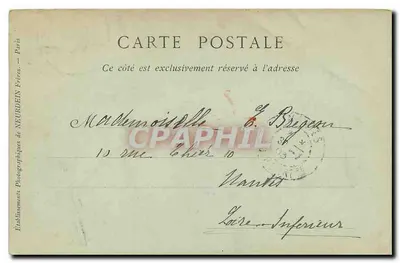 CARTE POSTALE
Ce côté est exclusivement réservé à l'adresse
Mademoiselle E. Bregeon
10 rue Thier 10
Nantes
Loire Inferieur
Etablissements Photographiques de NEURDEIN Frères. — Paris
CPAPHIL